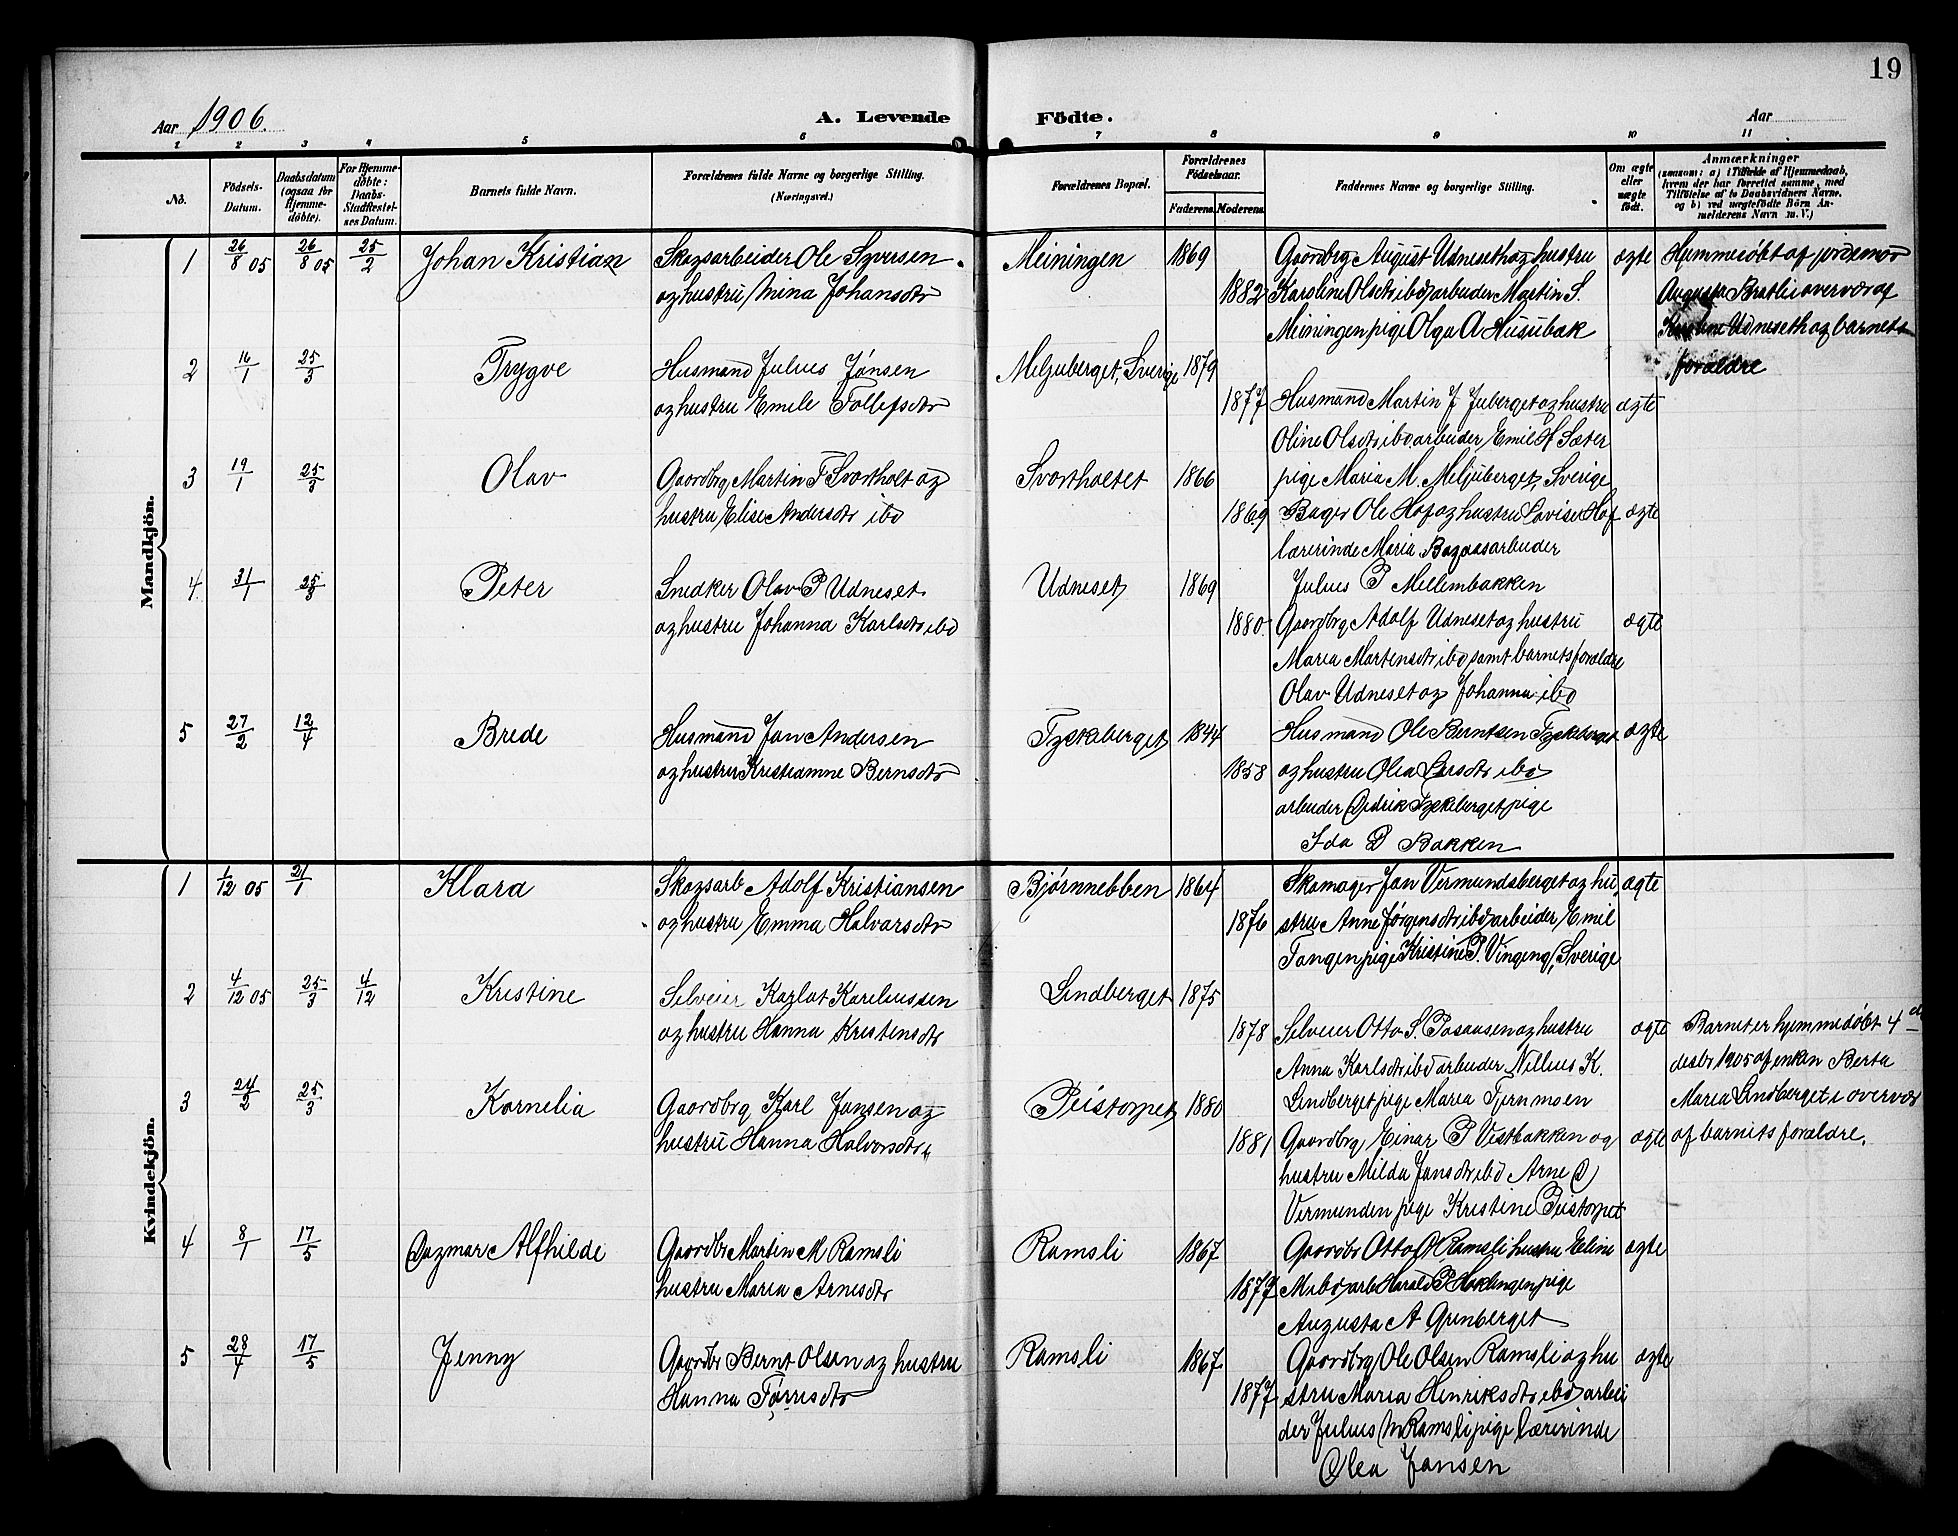 19
Aar 1906. A. Levende Födte. Aar
1 2 3 4 5 6 7 8 9 10 11
No. Födsels-Datum. Daabsdatum (ogsaa for Hjemme-döbte). For Hjemme-döbte: Daabs-Stadfæstelses Datum. Barnets fulde Navn. Forældrenes fulde Navne og borgerlige Stilling. (Næringsvei.) Forældrenes Bopæl. Forældrenes Födselsaar. Faderens. Moderens. Faddernes Navne og borgerlige Stilling. Om ægte eller uægte födt. Anmærkninger (saasom: a) i Tilfælde af Hjemmedaab, hvem der har forrettet samme, med Tilföielse af to Daabsvidners Navne. og b) ved uægtefödte Börn Anmelderens Navn m. V.)
Mandkjön.
1 26/8 05 26/8 05 25/2 Johan Kristian Skogsarbeider Ole Syversen Meiningen 1869 Gaardbrg August Udneset og hustru ægte Hjemmedøbt af jordemor
og hustru Mina Johansdtr 1882 Karoline Olsdtr ibd arbeider Martin S. Augusta Bratli overvær af
Meiningen pige Olga A Husubak Karoline Udneseth og barnets
2 16/1 25/3 Trygve Husmand Julius Jonsen Meljuberget, Sverige 1879 forældre
og hustru Emile Tollefsdtr 1877 Husmand Martin J Juberget og hustru ægte
Oline Olsdtr ibd arbeider Emil H Sæter
3 19/1 25/3 Olav Gaardbrg Martin F Svartholt og Svartholtet 1866 pige Maria M. Meljuberget, Sverige
hustru Elise Andersdtr ibd 1869 Bager Ole Hof og hustru Lovise Hof ægte
lærerinde Maria arbeider
4 31/1 25/3 Peter Snedker Olav P Udneset Udneset 1869 Julius P Mellembakken
og hustru Johanna Karlsdtr ibd 1880 Gaardbrg Adolf Udneset og hustru ægte
Maria Martensdtr ibd, samt barnets forældre
Olav Udneset og Johanna ibd
5 27/2 12/4 Brede Husmand Jan Andersen Tyskeberget 1844 Husmand Ole Berntsen Tyskeberget ægte
og hustru Kristianne Bernsdtr 1858 og hustru Olea Larsdtr ibd
arbeider Didrik Tyskeberget pige
Ida D Bakken
Kvindekjön.
1 1/12 05 21/1 Klara Skogsarb Adolf Kristiansen Bjørnnebben 1864 Skomager Jan Vermundsberget og hu ægte
og hustru Emma Halvarsdtr 1876 stru Anne Jørgensdtr ibd arbeider Emil
Tangen pige Kristine P. Vingeng, Sverige
2 4/12 05 25/3 4/12 Kristine Selveier Kareliussen Lindberget 1875
og hustru Hanna Kristensdtr 1878 Selveier Otto S. og hustru ægte Barnet er hjemmedøbt 4de
Anna Karlsdtr ibd arbeider Nillius K. desbr 1905 af enken Berta
3 24/2 25/3 Kornelia Gaardbrg Karl Jansen og Peistorpet 1880 Lindberget pige Maria Tjernmoen Maria Lindberget i overvær
hustru Hanna Halvorsdtr 1881 Gaardbrg Einar P Vestbakken og ægte af barnets forældre.
hustru Milda Jansdtr ibd Arne O
Vermunden pige Kristine Peistorpet
4 8/1 17/5 Dagmar Alfhilde Gaardbr Martin M Ramsli Ramsli 1867 Gaardbr Otto O Ramsli hustru Eline ægte
hustru Maria Arnesdtr 1877 M ibd arb Harald P pige
Augusta A Grenberget
5 28/4 17/5 Jenny Gaardbr Bernt Olsen og hustru Ramsli 1867 Gaardbrg Ole Olsen Ramsli og hu ægte
Hanna Tørrisdtr 1877 stru Maria Henriksdtr ibd arbei
der Julius M Ramsli pige lærerinde
Olea Jansen